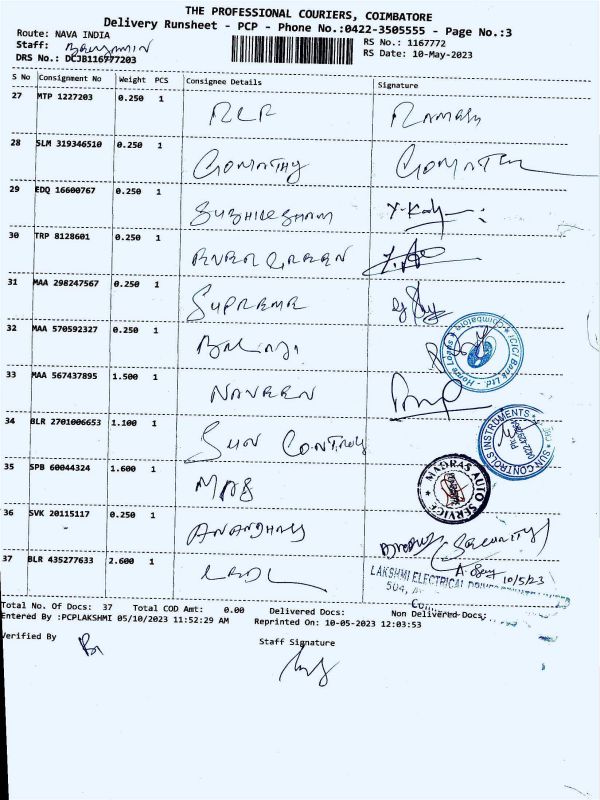 THE PROFESSIONAL COURIERS, COIMBATORE
Delivery Runsheet - PCP - Phone No.:0422-3505555 - Page No.:3
Route: NAVA INDIA
RS No.: 1167772
Staff: Benjamin
RS Date: 10-May-2023
DRS No.: DCJB116777203
S No Consignment No Weight PCS Consignee Details Signature
27 MTP 1227203 0.250 1 RLR Ramesh
28 SLM 319346510 0.250 1 GOMATHY
29 EDQ 16600767 0.250 1
30 TRP 8128601 0.250 1 EVER GREEN
31 MAA 298247567 0.250 1 SUPREME
32 MAA 570592327 0.250 1 Balaji
ICICI Bank Ltd. - Home Loans * Coimbatore *
33 MAA 567437895 1.500 1 NAVEEN
34 BLR 2701006653 1.100 1 SUN CONTROLS
SUN CONTROLS INSTRUMENTS
35 SPB 60044324 1.600 1 MAS
* MADRAS AUTO SERVICE *
36 SVK 20115117 0.250 1
(SECURITY)
37 BLR 435277633 2.600 1
10/5/23
LAKSHMI ELECTRICAL
504,
Total No. Of Docs: 37 Total COD Amt: 0.00 Delivered Docs: Non Delivered Docs:
Entered By :PCPLAKSHMI 05/10/2023 11:52:29 AM Reprinted On: 10-05-2023 12:03:53
Verified By
Staff Signature